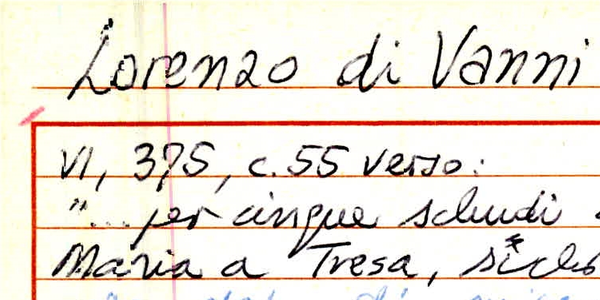 Lorenzo di Vanni
VI, 375, c. 55 verso:
"... per cinque scludi
Maria a Tresa,